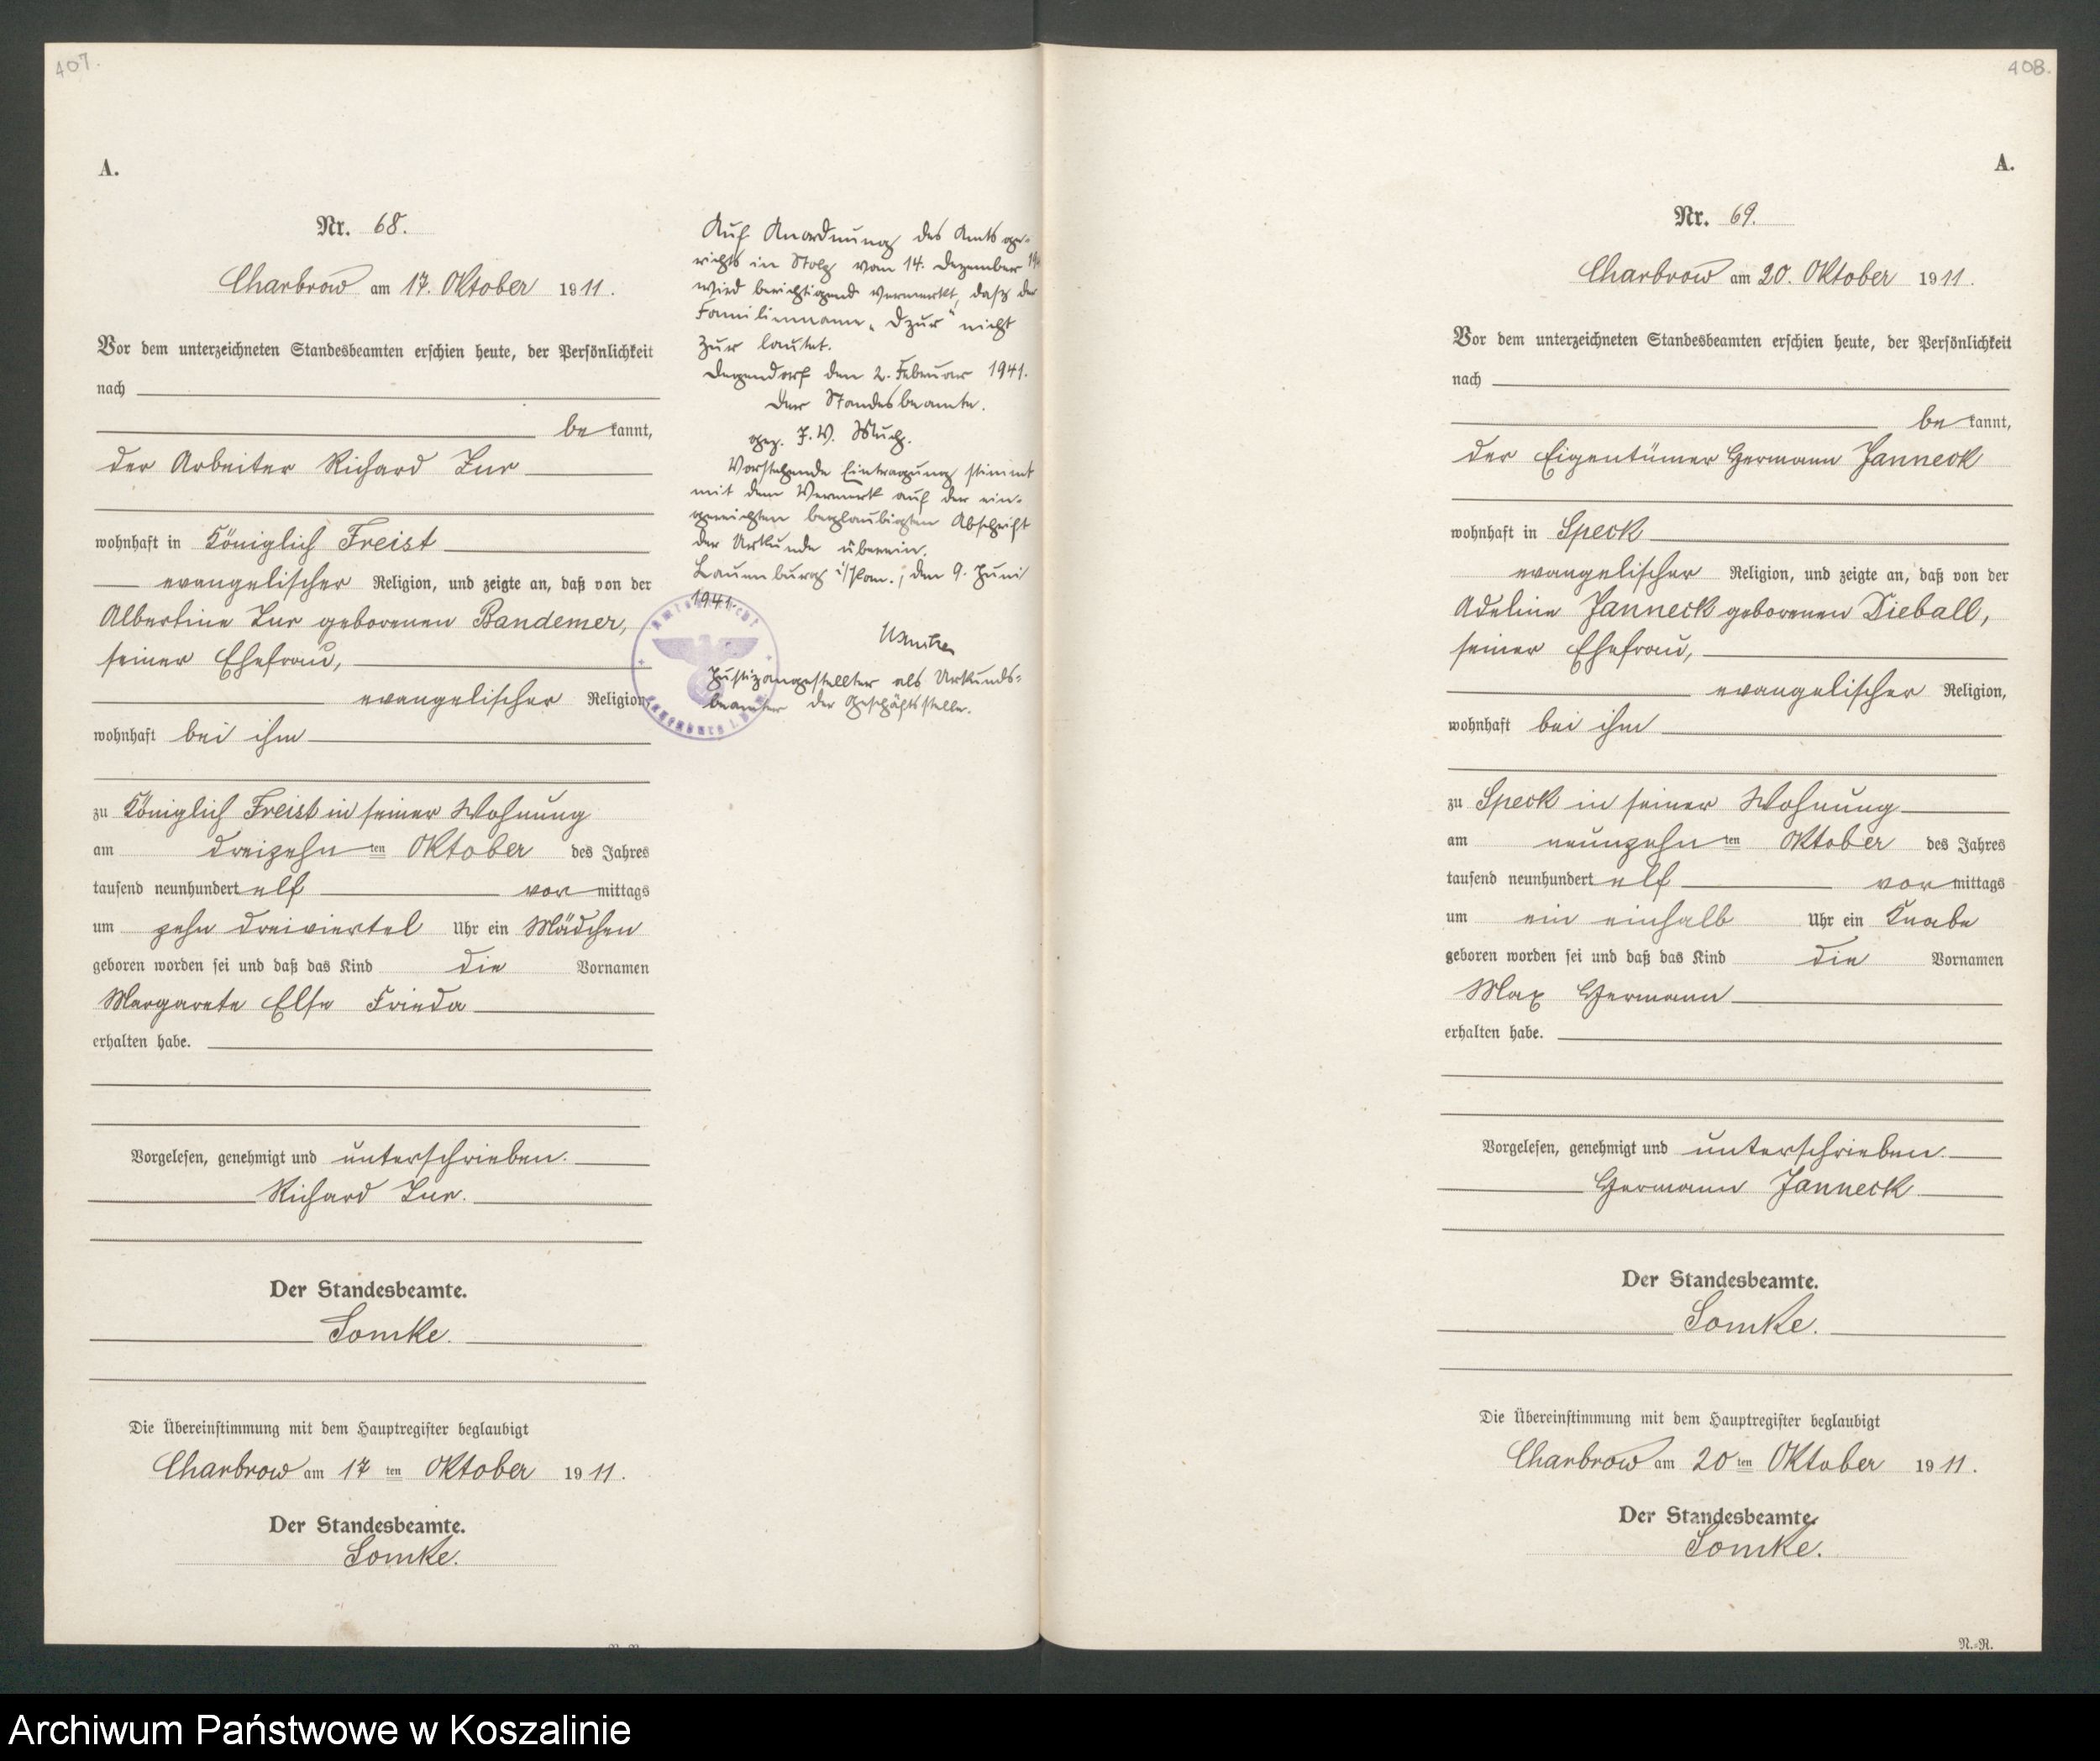 407.
A.
Nr. 68.
Charbrow am 17. Oktober 1911.
Vor dem unterzeichneten Standesbeamten erschien heute, der Persönlichkeit
nach
be kannt,
der Arbeiter Richard Zur
wohnhaft in Königlich Freist
evangelischer Religion, und zeigte an, daß von der
Albertine Zur geborenen Bandemer,
seiner Ehefrau,
evangelischer Religion,
wohnhaft bei ihm
zu Königlich Freist in seiner Wohnung
am dreizehn ten Oktober des Jahres
tausend neunhundert elf vor mittags
um zehn dreiviertel Uhr ein Mädchen
geboren worden sei und daß das Kind die Vornamen
Margarete Else Frieda
erhalten habe.
Vorgelesen, genehmigt und unterschrieben.
Richard Zur.
Der Standesbeamte.
Somke.
Die Übereinstimmung mit dem Hauptregister beglaubigt
Charbrow am 17 ten Oktober 1911.
Der Standesbeamte.
Somke.
Auf Anordnung des Amtsge-
richts in Stolp vom 14. Dezember
wird berichtigend vermerkt, daß der
Familienname „Dzur" nicht
Zur lautet.
Degendorf den 2. Februar 1941.
Der Standesbeamte.
gez. J. V. Much.
Vorstehende Eintragung stimmt
mit dem Vermerk auf der ein-
gereichten beglaubigten Abschrift
der Urkunde überein.
Lauenburg i/Pom., den 9. Juni
1941.
Justizangestellter als Urkunds-
beamter der Geschäftsstelle.
Amtsgericht
Lauenburg i. Pom.
408.
A.
Nr. 69.
Charbrow am 20. Oktober 1911.
Vor dem unterzeichneten Standesbeamten erschien heute, der Persönlichkeit
nach
be kannt,
der Eigentümer Hermann Janneck
wohnhaft in Speck
evangelischer Religion, und zeigte an, daß von der
Adeline Janneck geborenen Dieball,
seiner Ehefrau,
evangelischer Religion,
wohnhaft bei ihm
zu Speck in seiner Wohnung
am neunzehn ten Oktober des Jahres
tausend neunhundert elf vor mittags
um ein einhalb Uhr ein Knabe
geboren worden sei und daß das Kind die Vornamen
Max Hermann
erhalten habe.
Vorgelesen, genehmigt und unterschrieben.
Hermann Janneck
Der Standesbeamte.
Somke.
Die Übereinstimmung mit dem Hauptregister beglaubigt
Charbrow am 20 ten Oktober 1911.
Der Standesbeamte.
Somke.
N.=R.
Archiwum Państwowe w Koszalinie